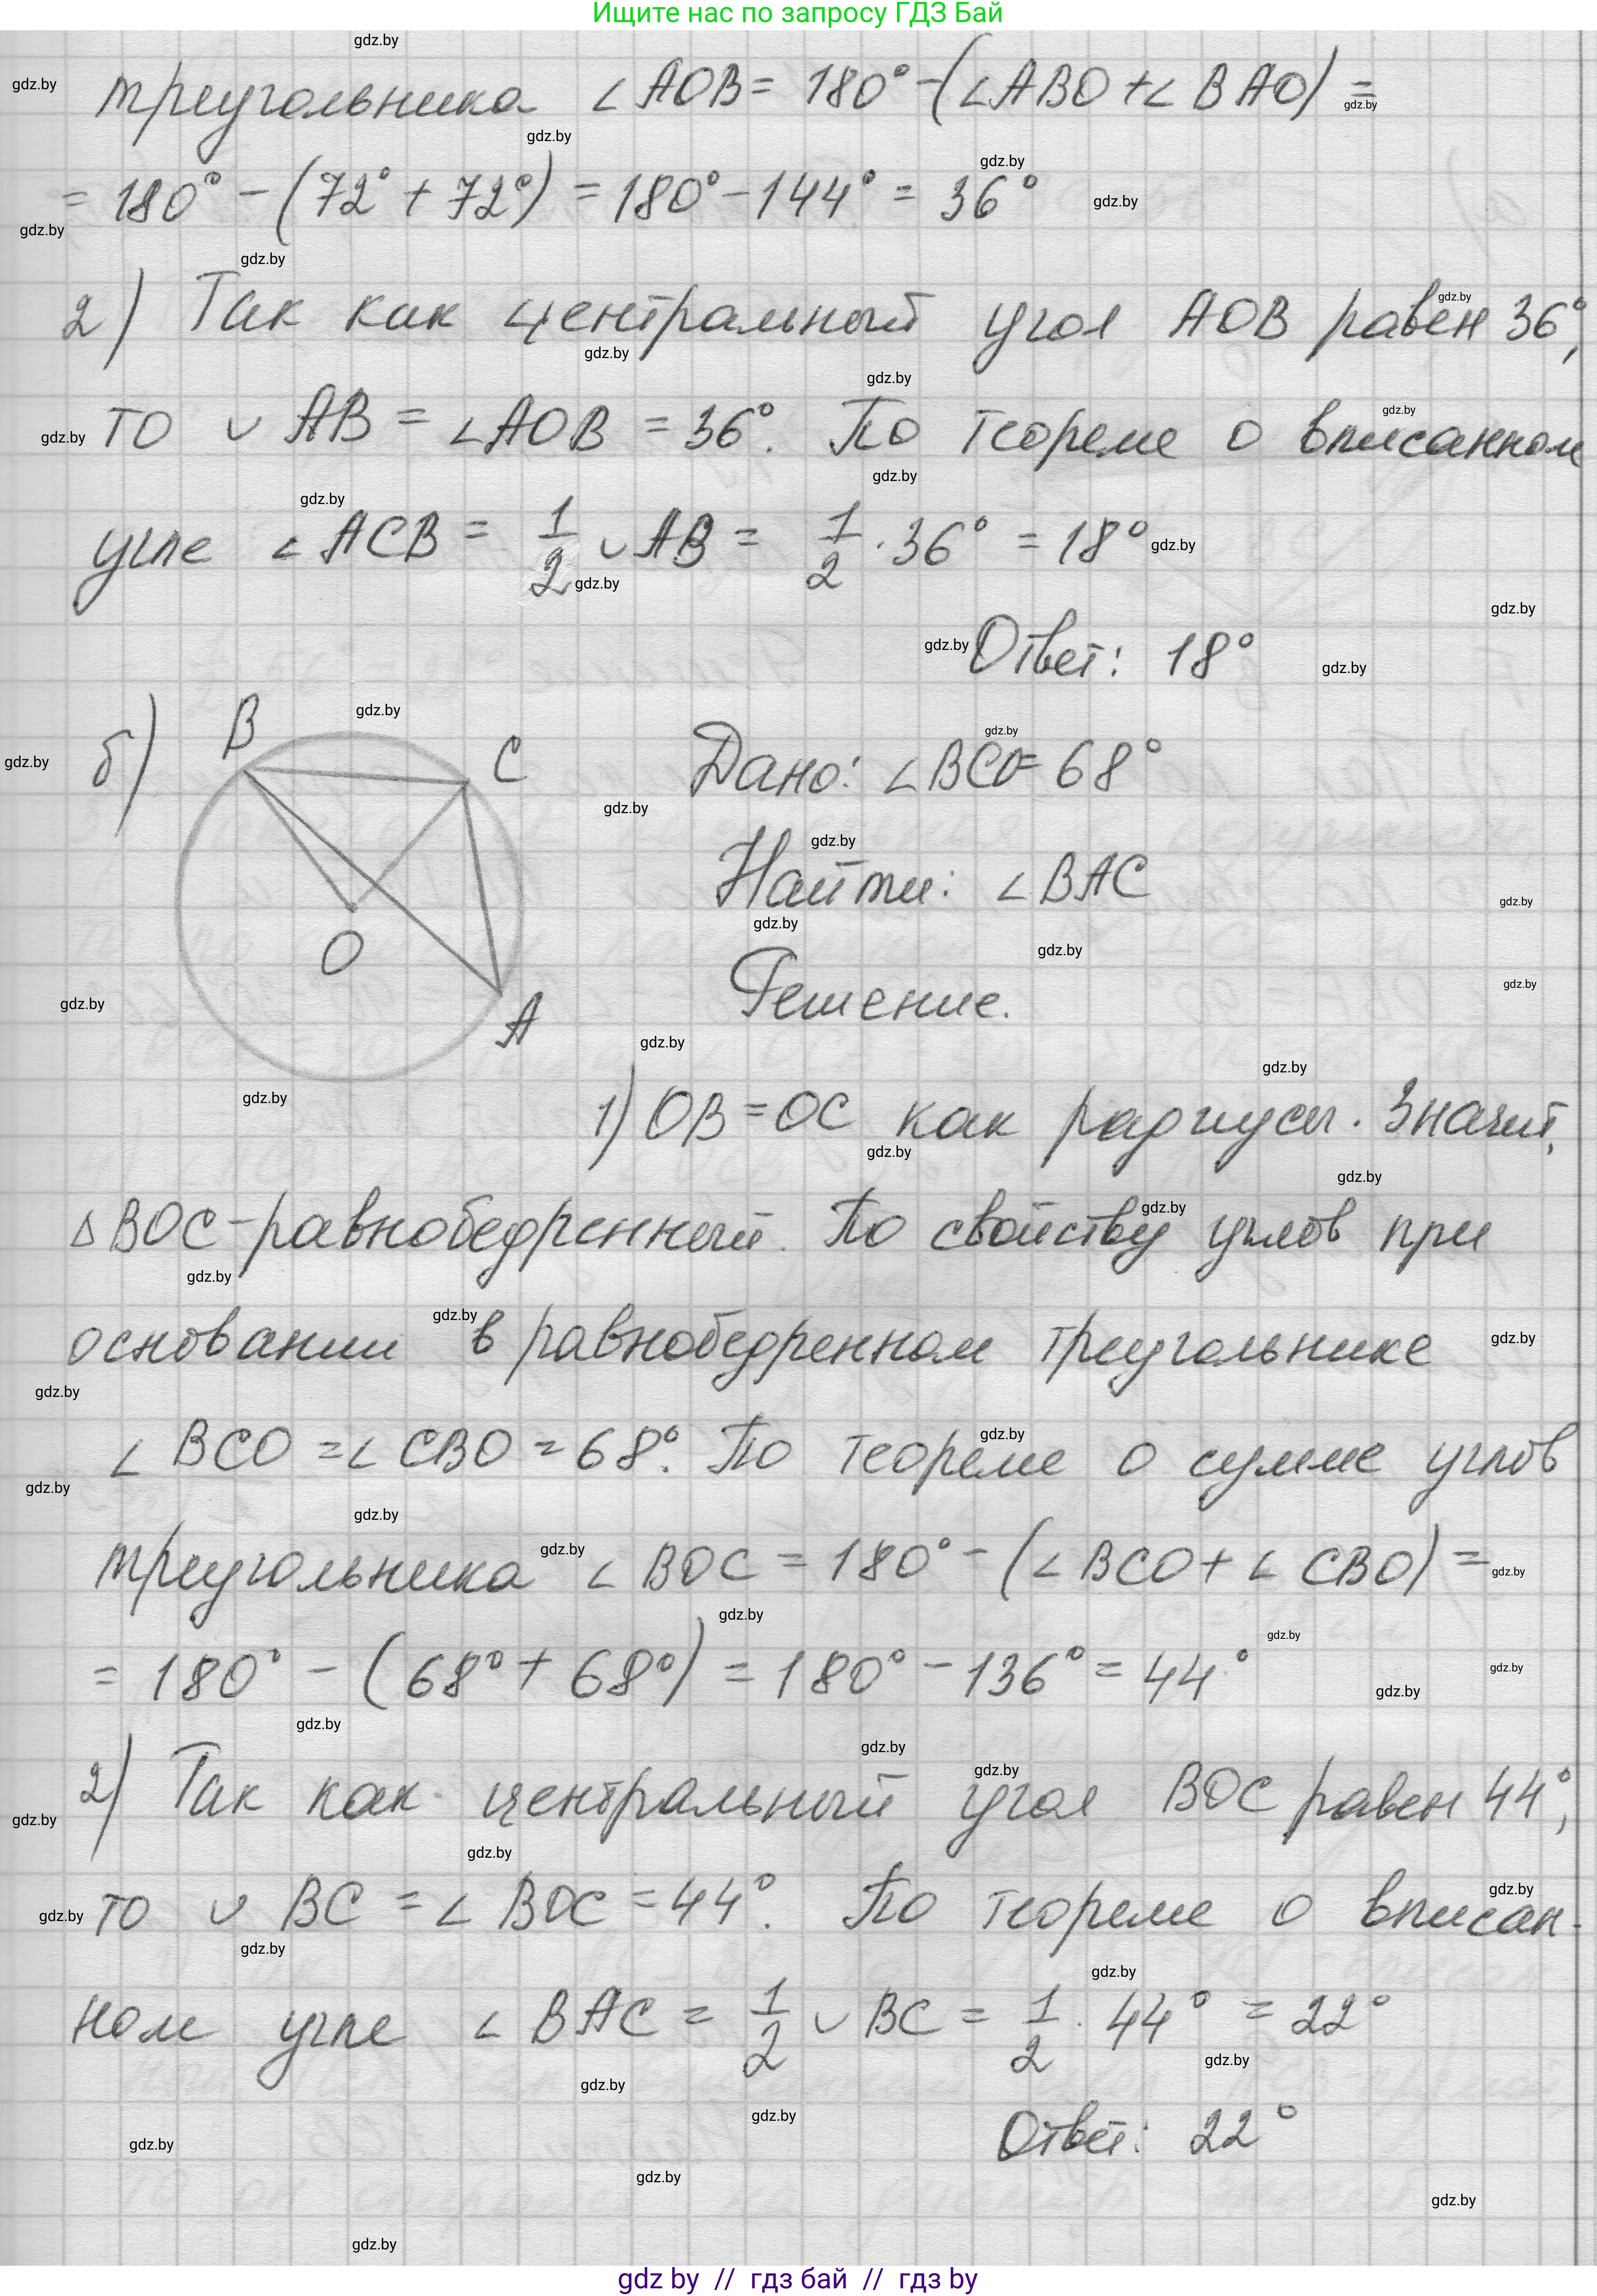 Ищите нас по запросу ГДЗ Бай
треугольника ∠AOB = 180° - (∠ABO + ∠BAO) =
= 180° - (72° + 72°) = 180° - 144° = 36°
2) Так как центральный угол AOB равен 36°,
то ∪ AB = ∠AOB = 36°. По теореме о вписанном
угле ∠ACB = 1/2 ∪ AB = 1/2 · 36° = 18°
Ответ: 18°
б)
B
C
O
A
Дано: ∠BCO = 68°
Найти: ∠BAC
Решение.
1) OB = OC как радиусы. Значит,
△BOC - равнобедренный. По свойству углов при
основании в равнобедренном треугольнике
∠BCO = ∠CBO = 68°. По теореме о сумме углов
треугольника ∠BOC = 180° - (∠BCO + ∠CBO) =
= 180° - (68° + 68°) = 180° - 136° = 44°
2) Так как центральный угол BOC равен 44°,
то ∪ BC = ∠BOC = 44°. По теореме о вписан-
ном угле ∠BAC = 1/2 ∪ BC = 1/2 · 44° = 22°
Ответ: 22°
gdz by // гдз бай // гдз by